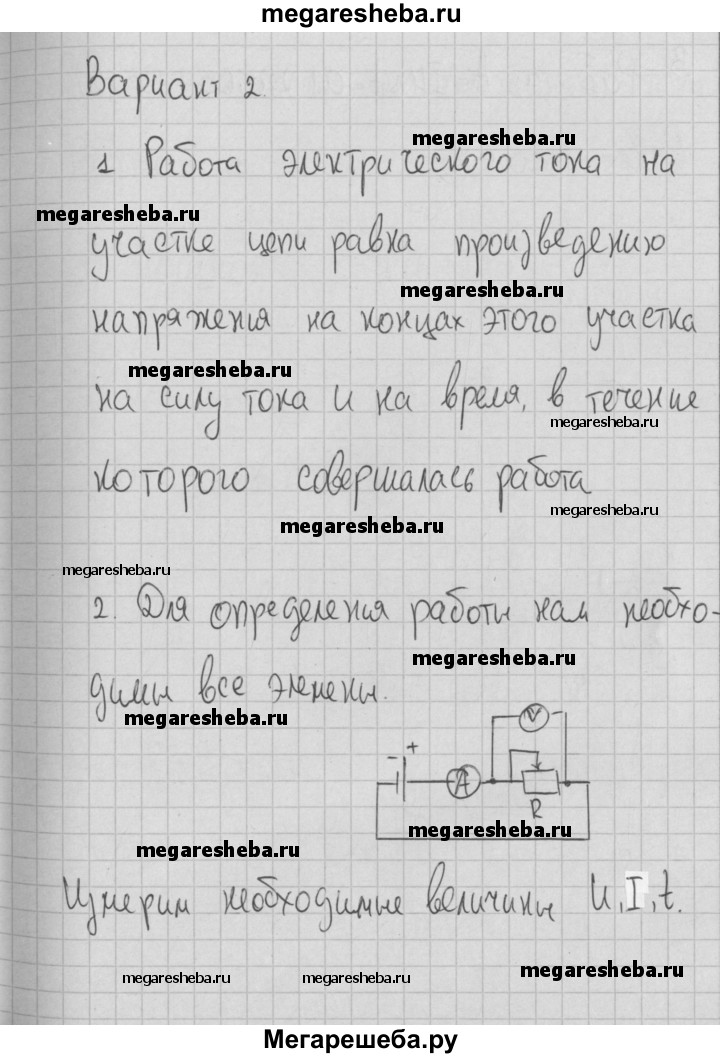 megaresheba.ru
Вариант 2.
megaresheba.ru
1 Работа электрического тока на
megaresheba.ru
участке цепи равна произведению
megaresheba.ru
напряжения на концах этого участка
megaresheba.ru
на силу тока и на время, в течение
megaresheba.ru
которого совершалась работа
megaresheba.ru
megaresheba.ru
megaresheba.ru
2. Для определения работы нам необхо-
megaresheba.ru
димы все элемены.
megaresheba.ru
V
- +
A
R
megaresheba.ru
megaresheba.ru
Измерим необходимые величины U, I, t.
megaresheba.ru
megaresheba.ru
megaresheba.ru
Мегарешеба.ру